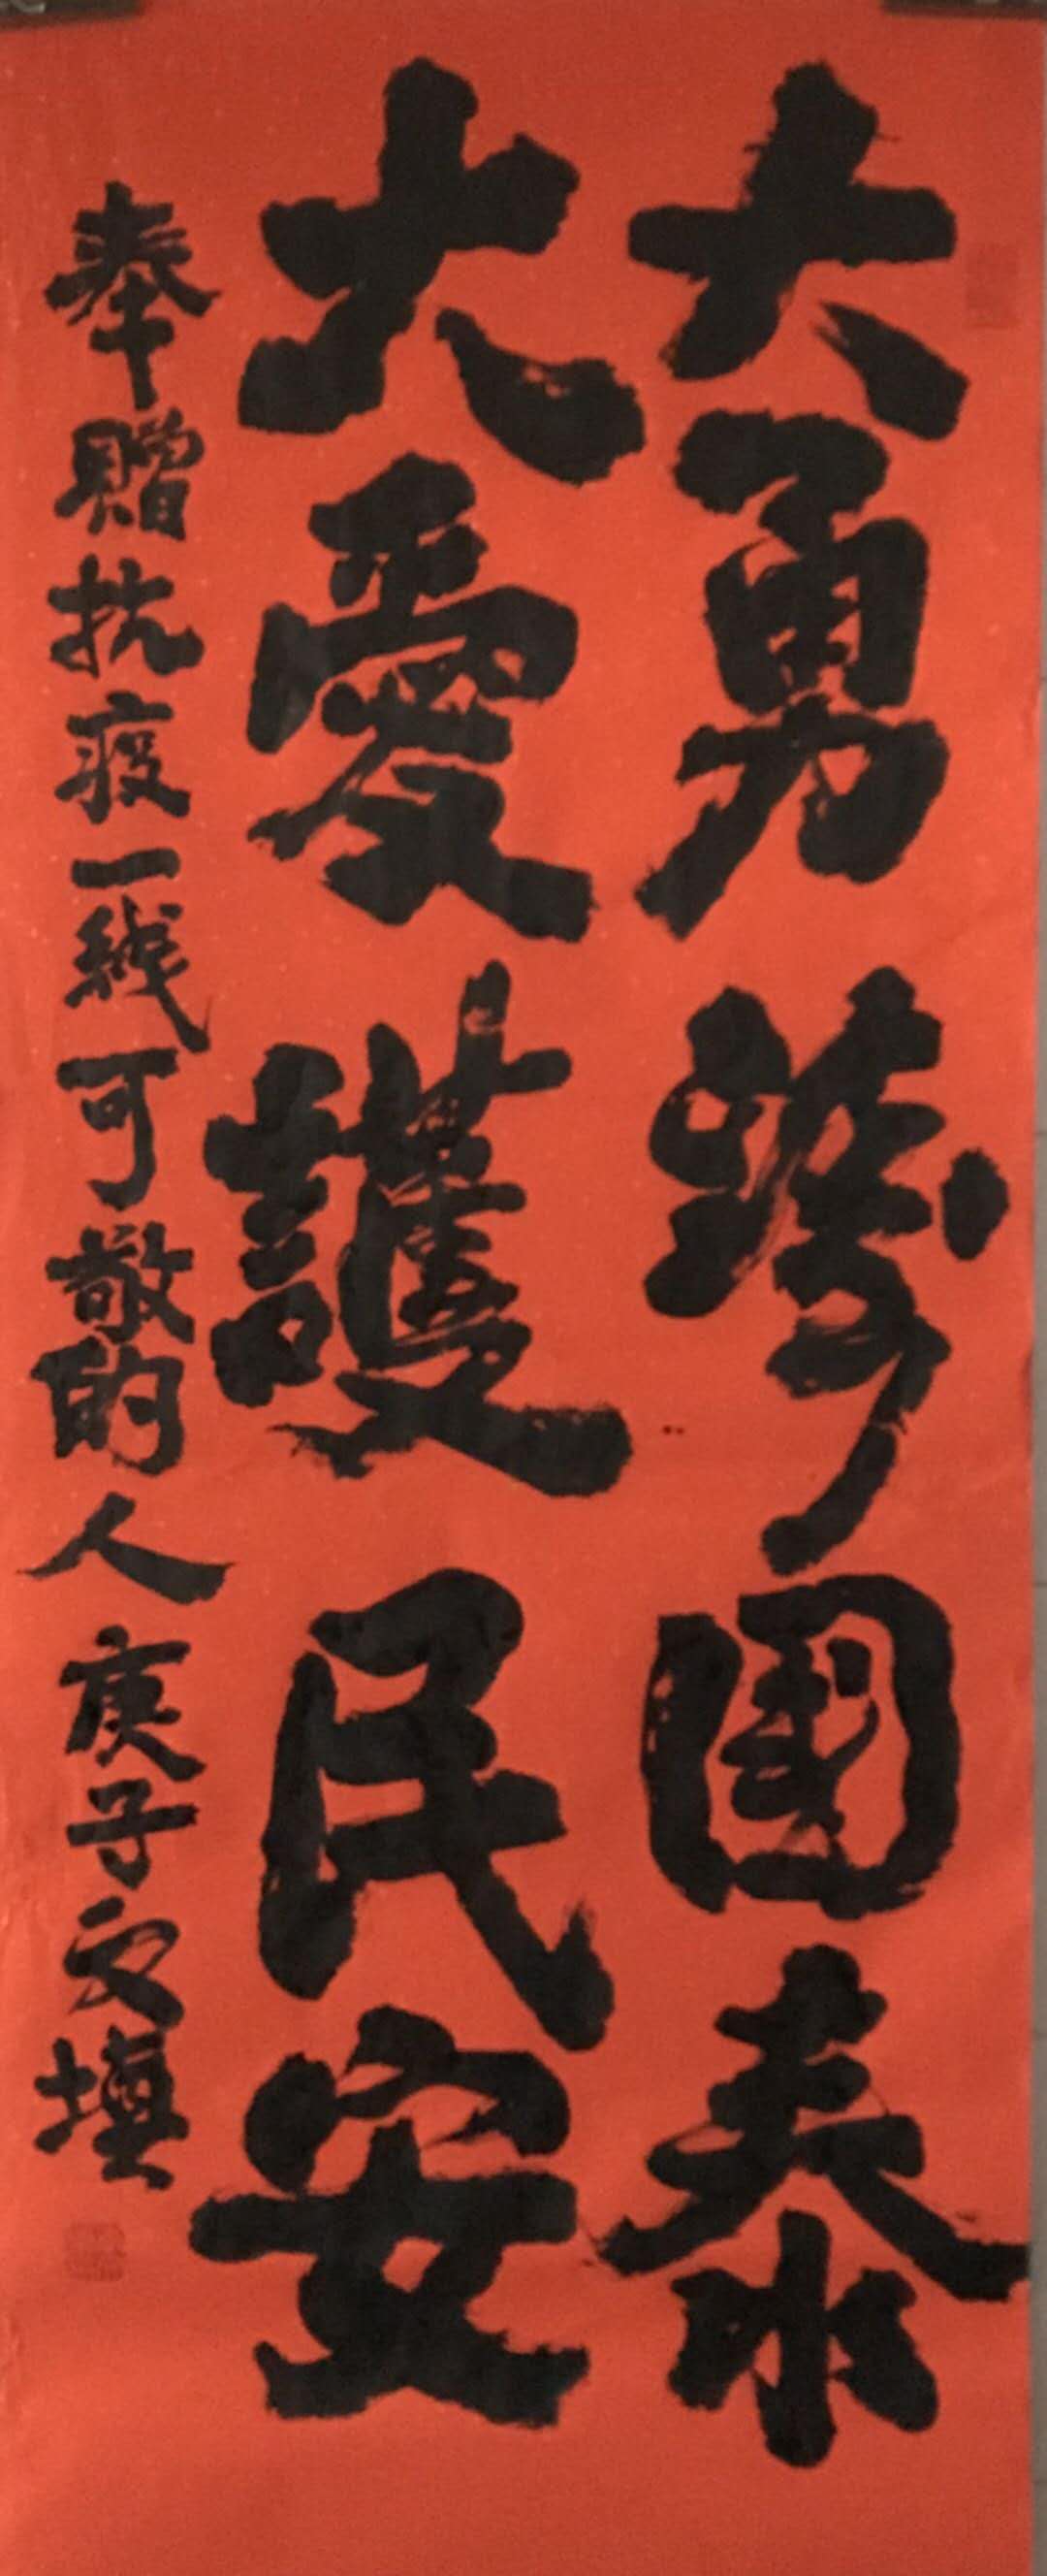 大勇鑄國泰
大愛護民安
奉贈抗疫一綫可敬的人 庚子文填